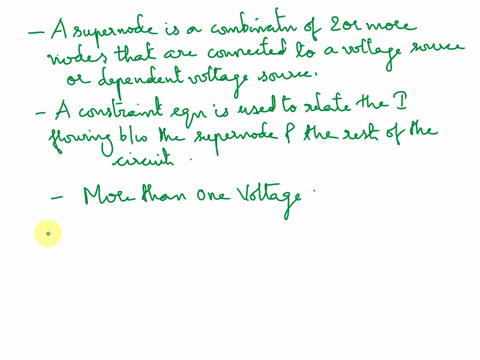 - A supernode is a combinatn of 2 or more
nodes that are connected to a voltage source
or dependent voltage source.
- A constraint eqn is used to relate the I
flowing b/w the supernode & the rest of the
circuit.
- More than one Voltage.